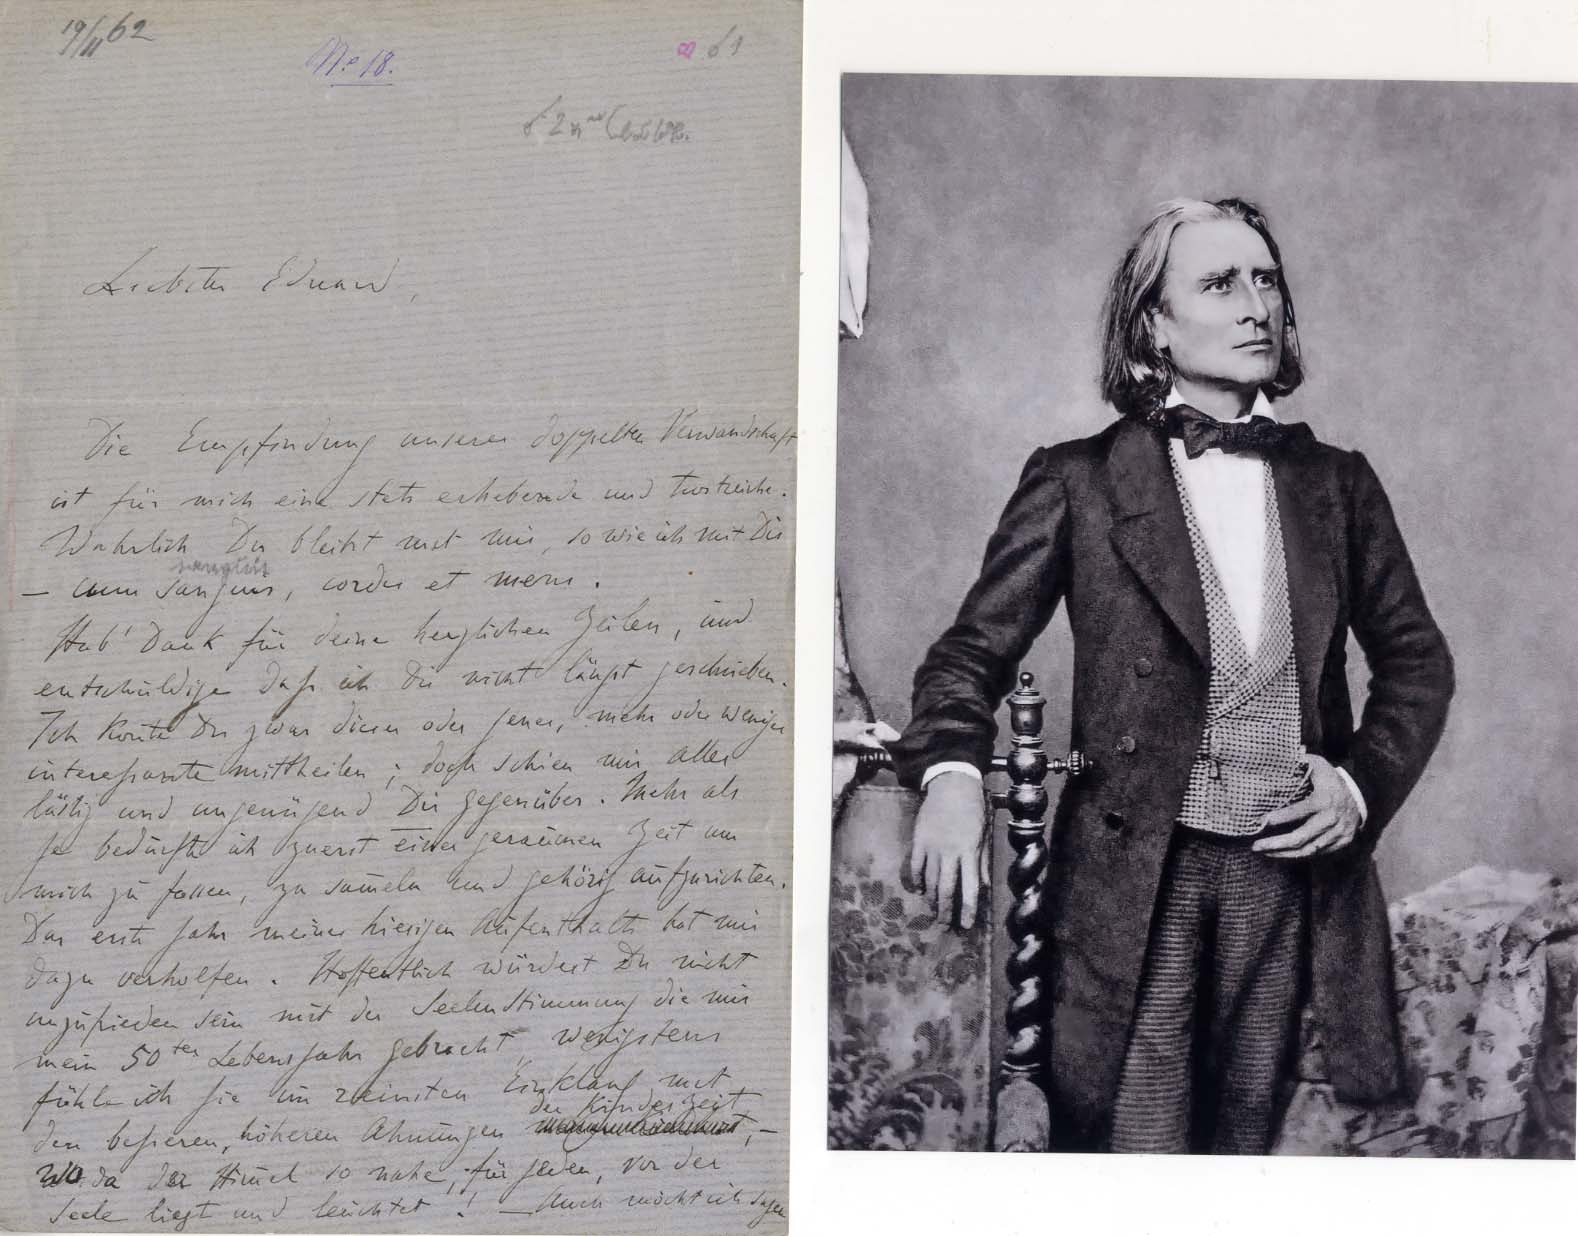 19/11 62
No 18.
61
Liebster Eduard,
Die Empfindung unserer doppelten Verwandschaft
ist für mich eine stets erhebende und trostreiche.
Wahrlich Du bleibst mit mir, so wie ich mit Dir
— cum sanguis, cordis et mens.
Hab' Dank für deine herzlichen Zeilen, und
entschuldige dass ich Dir nicht längst geschrieben.
Ich konte Dir zwar dieses oder jenes, mehr oder weniger
interessante mittheilen; doch schien mir alles
lästig und ungenügend Dir gegenüber. Mehr als
je bedurfte ich zuerst einer geraumen Zeit um
mich zu fassen, zu sam̄eln und gehörig aufzurichten.
Das erste Jahr meines hiesigen Aufenthalts hat mir
dazu verholfen. Hoffentlich würdest Du nicht
unzufrieden sein mit der Seelenstimmung die mir
mein 50tes Lebensjahr gebracht, wenigstens
fühle ich sie im reinsten Einklang mit
der Kinderzeit
den besseren, höheren Ahnungen —
wo da der Him̄el so nahe, für jeden, vor der
Seele liegt und leuchtet! — Auch möcht ich sagen